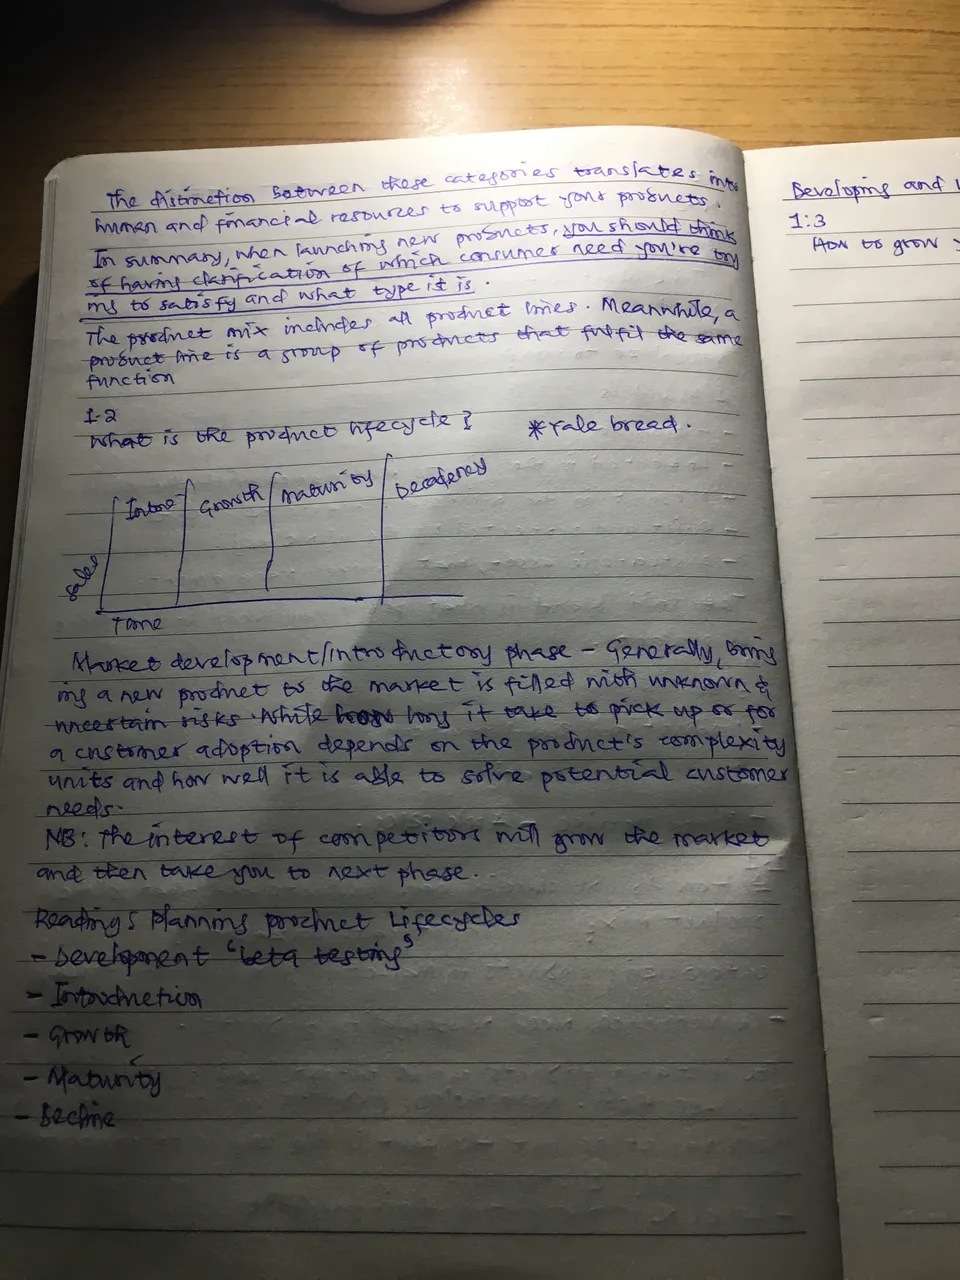 The distinction between these categories translates into
human and financial resources to support your products.
In summary, when launching new products, you should think
of having clarification of which consumer need you're try
ing to satisfy and what type it is.
The product mix includes all product lines. Meanwhile, a
product line is a group of products that fulfil the same
function
1-2
What is the product lifecycle?
*Yale bread.
Intro
Growth
Maturity
Decadency
Sales
Time
Market development/introductory phase - Generally, bring
ing a new product to the market is filled with unknown &
uncertain risks. While long it take to pick up or for
a customer adoption depends on the product's complexity
units and how well it is able to solve potential customer
needs.
NB: The interest of competitors will grow the market
and then take you to next phase.
Readings Planning product Lifecycles
- Development "beta testing"
- Introduction
- Growth
- Maturity
- Decline
Developing and
1:3
How to grow